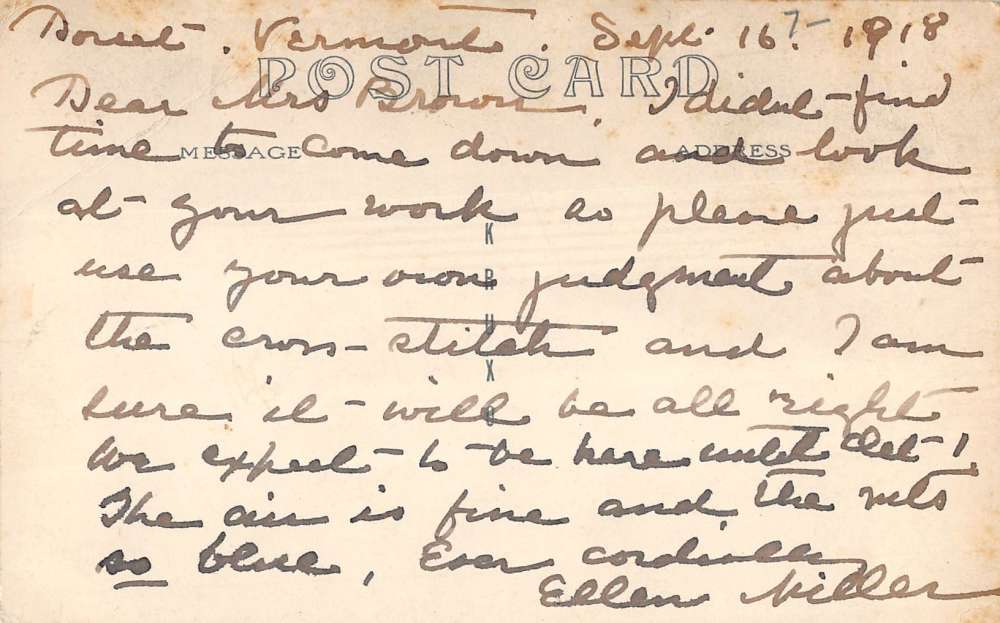 Dorset, Vermont. Sept. 16? 1918
POST CARD
Dear Mrs Brown, I didnt find
time to come down and look
MESSAGE ADDRESS
at your work so please just
use your own judgment about
the cross-stitch and I am
sure it will be all right
We expect to be here until Oct 1.
The air is fine and the mts
so blue, Ever cordially
Ellen Miller